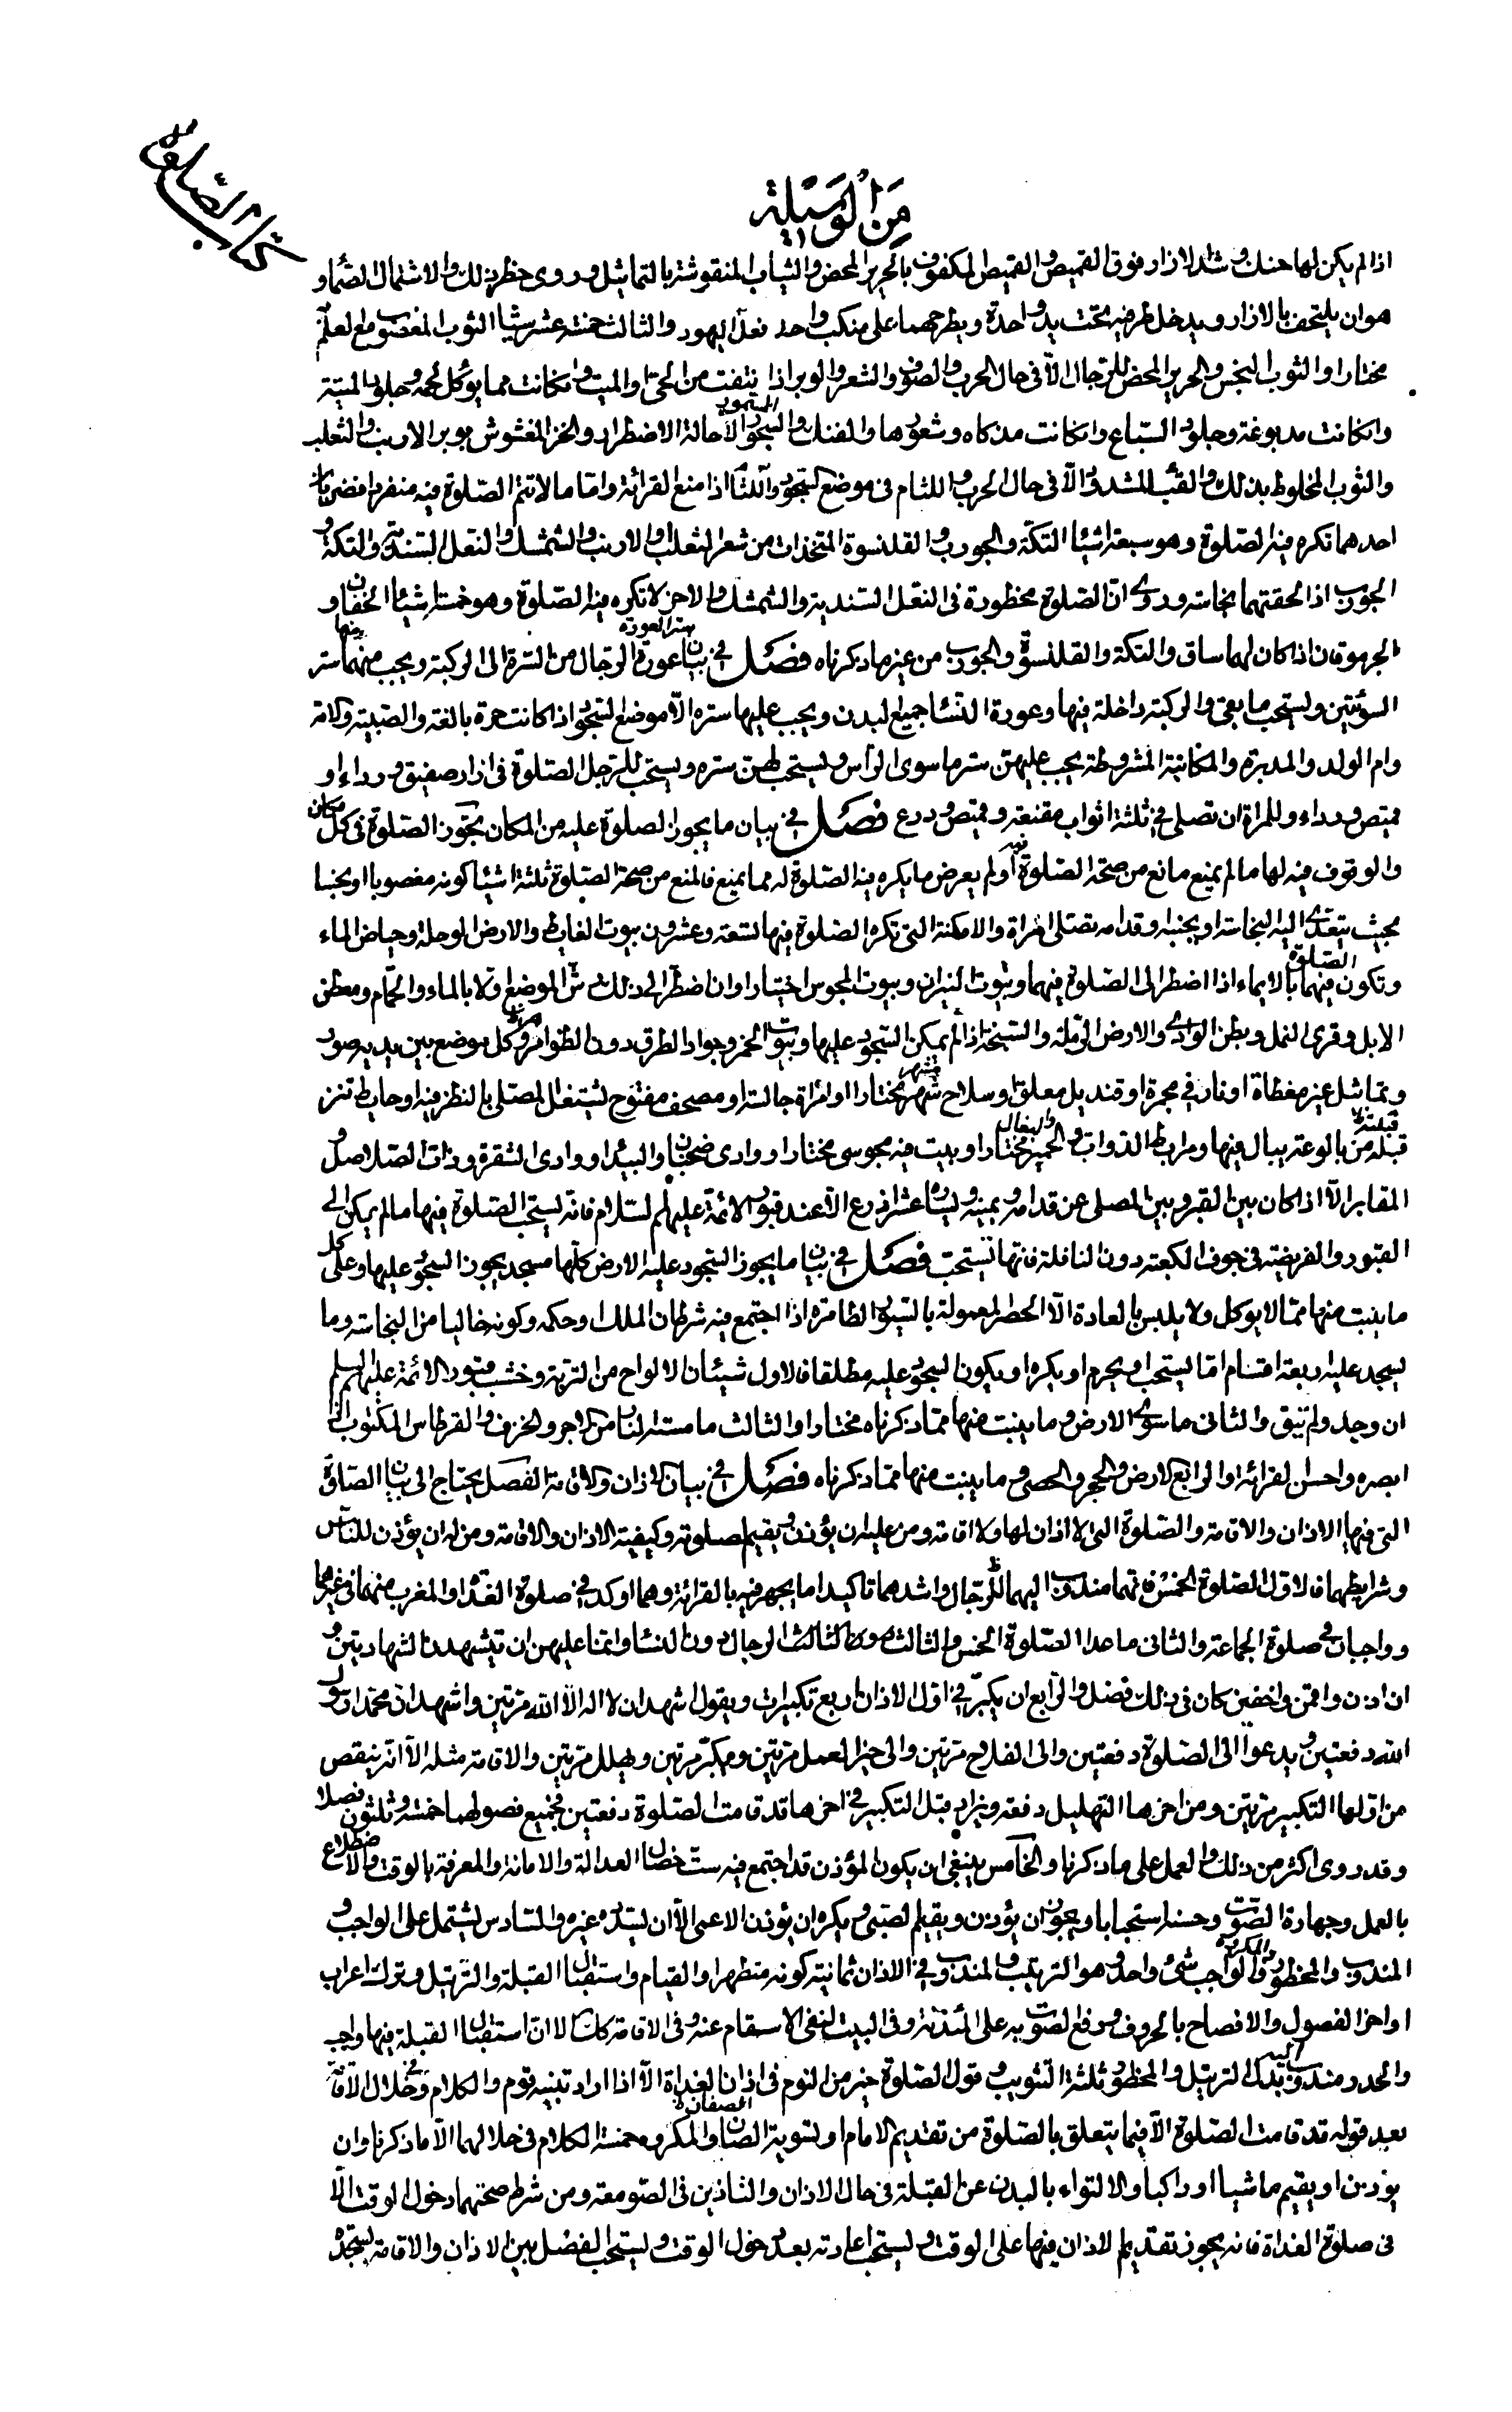 كتاب الصلوة
من الوسيلة
اذا لم يكن لها حنك وشد الازار فوق القميص والقميص المكفوف بالحرير المحض والثياب المنقوشة بالتماثيل وروى حظر ذلك والاشتمال الصماء و
هو ان يلتحف بالازار ويدخل طرفيه تحت يد واحدة ويطرحهما على منكب واحد فعل اليهود والثالث خمسة عشر شيئا الثوب المغصوب مع العلم
مختارا والثوب النجس والحرير المحض للرجال الا فى حال الحرب والصوف والشعر والوبر اذا نتفت من الحى والميت وان كانت مما يؤكل لحمه وجلود الميتة
وان كانت مدبوغة وجلود السباع وان كانت مذكاه وشعورها والفنك والسمور الا حالة الاضطرار والخز المغشوش بوبر الارنب والثعلب
والثوب المخلوط بذلك والقباء المشدود الا فى حال الحرب واللثام فى موضع السجود واللثام اذا منع القرائة واما ما لا تتم الصلوة فيه منفردا فضربان
احدهما تكره فيه الصلوة وهو سبعة اشياء التكة والجورب والقلنسوة المتخذات من شعر الثعلب والارنب والشمشك والنعل السندية والتكة و
الجورب اذا لحقتهما نجاسة وروى ان الصلوة محظورة فى النعل السندية والشمشك والاخر لا تكره فيه الصلوة وهو خمسة اشياء الخفان و
الجرموقان اذا كان لهما ساق والتكة والقلنسوة والجورب من غير ما ذكرناه فصل فى بيان ستر العورة عورة الرجال من السرة الى الركبة ويجب منهما ستر
السوئتين ويستحب ما بقى والركبة داخلة فيها وعورة النساء جميع البدن ويجب عليها ستره الا موضع السجود اذا كانت حرة بالغة والصبية والامة
وام الولد والمدبرة والمكاتبة المشروطة يجب عليهن ستر ما سوى الرأس ويستحب لهن ستره ويستحب للرجل الصلوة فى ازار صفيق ورداء او
قميص ورداء وللمراة ان تصلى فى ثلثة اثواب مقنعة وقميص ودرع فصل فى بيان ما يجوز الصلوة عليه من المكان تجوز الصلوة فى كل مكان
والوقوف فيه لها ما لم يمنع مانع من صحة الصلوة فيه او لم يعرض ما يكره فيه الصلوة له مما يمنع فالمنع من صحة الصلوة ثلثة اشياء كونه مغصوبا او نجسا
بحيث يتعدى اليه النجاسة او بجنبه وقدامه تصلى امراة والامكنة التى تكره الصلوة فيها تسعة وعشرون بيوت الغايط والارض الوحلة وحياض الماء
وتكون الصلوة فيهما بالايماء اذا اضطر الى الصلوة فيهما وبيوت النيران وبيوت المجوس اختيارا وان اضطر الى ذلك رش الموضع اولا بالماء والحمام ومعطن
الابل وقرى النمل وبطن الوادى والارض الرملة والسبخة اذا لم يمكن السجود عليها وبيوت الخمر وجواد الطرق دون الظواهر وكل موضع بين يديه صور
وتماثيل غير مغطاة او نار فى مجمرة او قنديل معلق وسلاح مشهر مختارا او امراة جالسة او مصحف مفتوح ليشتغل المصلى بالنظر فيه او حايط تنز
قبلته من بالوعة يبال فيها ومرابط الدواب والبغال والحمير مختارا وبيت فيه مجوسى مختارا ووادى ضجنان والبيداء ووادى الشقرة وذات الصلاصل و
المقابر الا اذا كان بين القبر وبين المصلى عن قدامه ويمينه ويساره عشر اذرع الا عند قبور الائمة عليهم السلام فانه يستحب الصلوة فيها ما لم يكن الى
القبور والفريضة فى جوف الكعبة دون النافلة فانها تستحب فصل فى بيان ما يجوز السجود عليه الارض كلها مسجد يجوز السجود عليها وعلى كل
ما ينبت منها مما لا يوكل ولا يلبس بالعادة الا الحصر المعمولة بالسيور الظاهرة اذا اجتمع فيه شرطان الملك او حكمه وكونه خاليا من النجاسة وما
يسجد عليه اربعة اقسام اما يستحب او يحرم او يكره او يكون السجود عليه مطلقا فالاول شيئان الالواح من التربة وخشب قبور الائمة عليهم السلم
ان وجد ولم تيق والثانى ما سوى الارض وما ينبت منها مما ذكرناه مختارا والثالث ما مسته النار من الاجر والخزف والقرطاس المكتوب اذا
ابصره واحسن القرائة والرابع الارض والحجر والحصى وما ينبت منها مما ذكرناه فصل فى بيان الاذان والاقامة الفصل يحتاج الى بيان الصلوة
التى فيها الاذان والاقامة والصلوة التى لا اذان لها ولا اقامة ومن عليه ان يؤذن ويقيم لصلوته وكيفية الاذان والاقامة ومن له ان يؤذن للناس
وشرايطهما فالاول الصلوة الخمس فانهما مندوب اليهما للرجال واشدهما تاكيدا ما يجهر فيه بالقرائة وهما اوكد فى صلوة الغداة والمغرب منهما فى غيرهما
وواجبان فى صلوة الجماعة والثانى ما عدا الصلوة الخمس والثالث الرجال دون النساء وانما عليهن ان تيشهدن الشهادتين و
ان اذن واقمن واخفين كان فى ذلك فضل والرابع ان يكبر فى اول الاذان اربع تكبيرات ويقول اشهد ان لا اله الا الله مرتين واشهد ان محمدا رسول
الله دفعتين ويدعوا الى الصلوة دفعتين والى الفلاح مرتين والى خير العمل مرتين ويكبر مرتين ويهلل مرتين والاقامة مثله الا انه ينقص
من اولها التكبير مرتين ومن اخرها التهليل دفعة ويزاد قبل التكبير فى اخرها قد قامت الصلوة دفعتين فجميع فصولهما خمسة وثلثون فصلا
وقد روى اكثر من ذلك والعمل على ما ذكرنا والخامس ينبغى ان يكون المؤذن قد اجتمع فيه ست خصال العدالة والامانة والمعرفة بالوقت والاضطلاع
بالعمل وجهارة الصوت وحسنه استحبابا ويجوز ان يؤذن ويقيم الصبى ويكره ان يؤذن الاعمى الا ان ليسدده غيره والسادس ليشتمل على الواجب و
المندوب والمحظور والمكروه فالواجب شئ واحد وهو الترتيب والمندوب فى الاذان ثمانية كونه متطهرا والقيام واستقبال القبلة والترتيل وترك اعراب
اواخر الفصول والافصاح بالحروف ورفع الصوت به على المئذنة وفى البيت لنفى الاسقام عنه وفى الاقامة كذلك الا ان استقبال القبلة فيها واجب
والحدر مندوب اليه بدل الترتيل والمحظور ثلثة التثويب وقول الصلوة خير من النوم فى اذان الغداة الا اذا اراد تنبيه قوم والكلام فى خلال الاقامة
بعد قوله قد قامت الصلوة الا فيما يتعلق بالصلوة من تقديم الامام او تسوية الصفان والمكروه خمسة الكلام فى خلالهما الا ما ذكرنا وان
يؤذن او يقيم ماشيا او راكبا والالتواء بالبدن عن القبلة فى حال الاذان والتاذين فى الصومعة ومن شرط صحتهما دخول الوقت الا
فى صلوة الغداة فانه يجوز تقديم الاذان فيها على الوقت ويستحب اعادته بعد دخول الوقت ويستحب الفصل بين الاذان والاقامة بسجدة